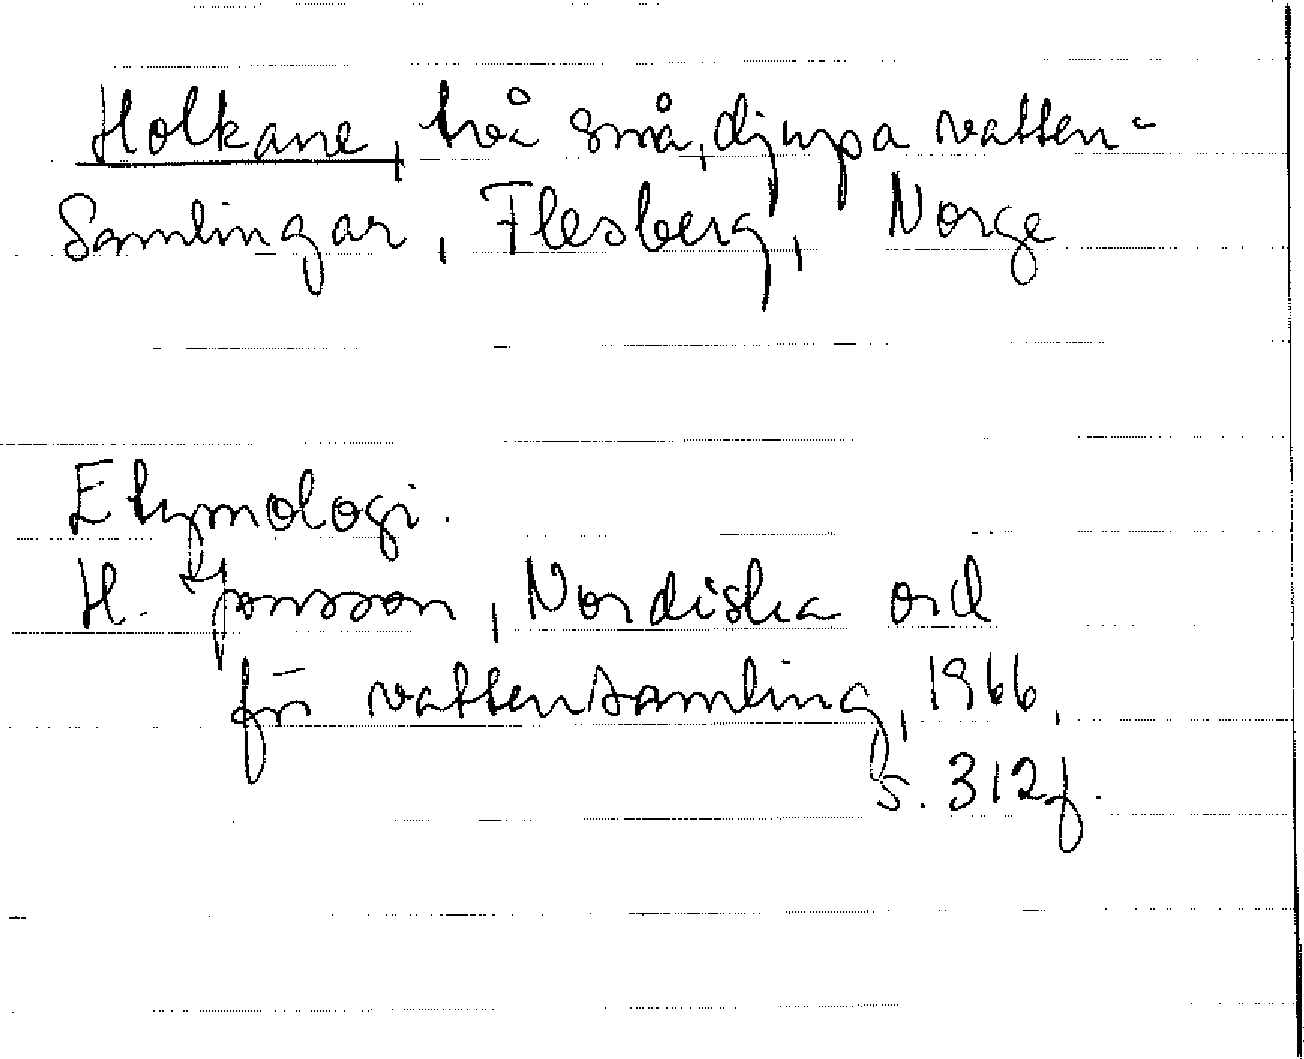 Holkane, två små, djupa vatten-
samlingar, Flesberg, Norge
Etymologi.
H. Jonsson, Nordiska ord
för vattensamling, 1966,
s. 312f.